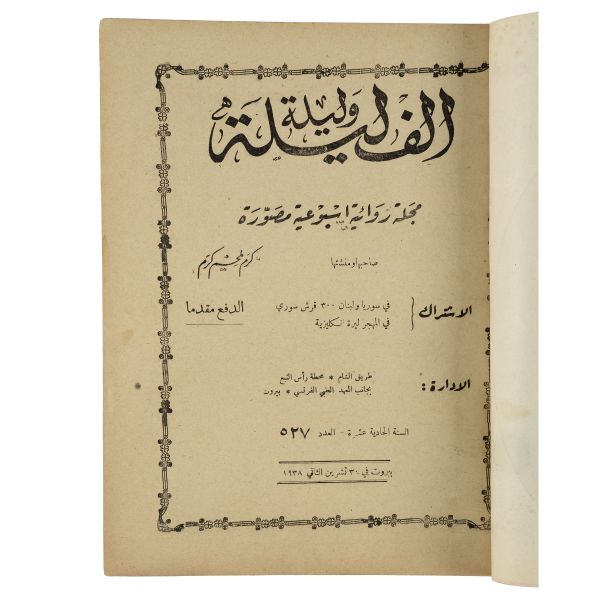 الف ليلة وليلة
مجلة روائية اسبوعية مصورة
صاحبها ومنشئها كرم ملحم كرم
الاشتراك { في سوريا ولبنان ٣٠٠ قرش سوري
في المهجر ليرة انكليزية
الدفع مقدما
الادارة : طريق الشام * محطة رأس النبع
بجانب المعهد العلمي الفرنسي * بيروت
السنة الحادية عشرة - العدد ٥٢٧
بيروت في ٣٠ تشرين الثاني ١٩٣٨